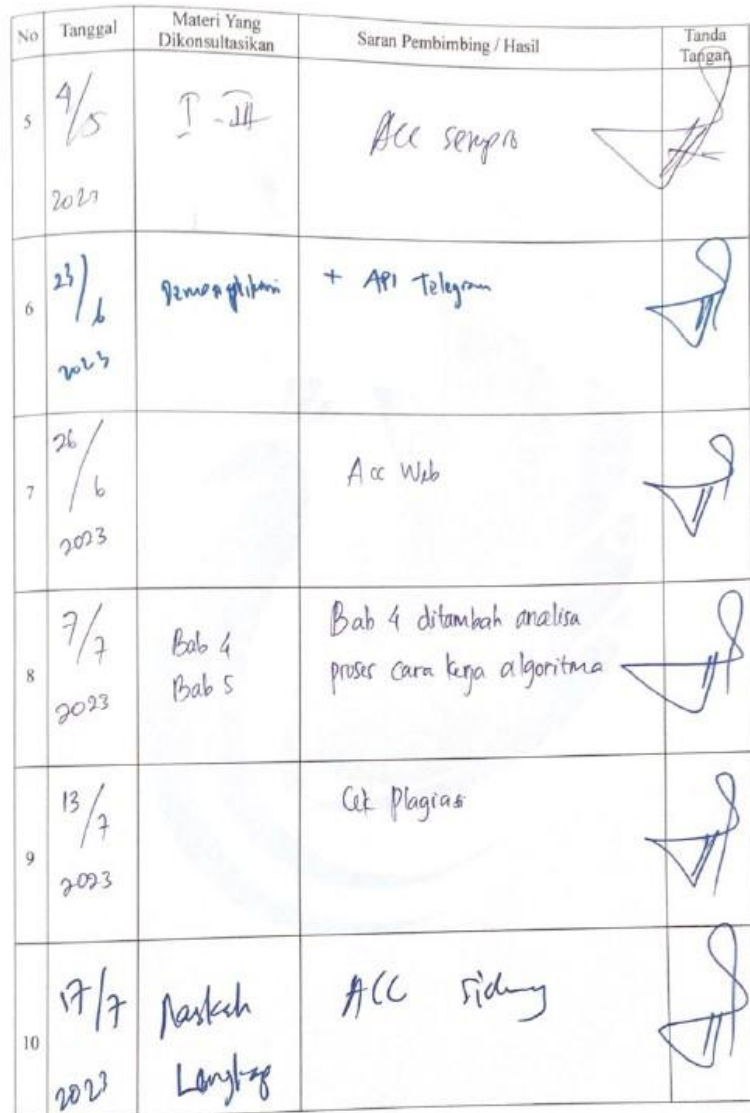 No Tanggal Materi Yang Dikonsultasikan Saran Pembimbing / Hasil Tanda Tangan
5 4/5 2023 I - III Acc sempro
6 23/6 2023 + API Telegram
7 26/6 2023 Acc Web
8 7/7 2023 Bab 4 Bab 5 Bab 4 ditambah analisa
proses cara kerja algoritma
9 13/7 2023 Cek Plagiasi
10 17/7 2023 Naskah Lengkap ACC Sidang